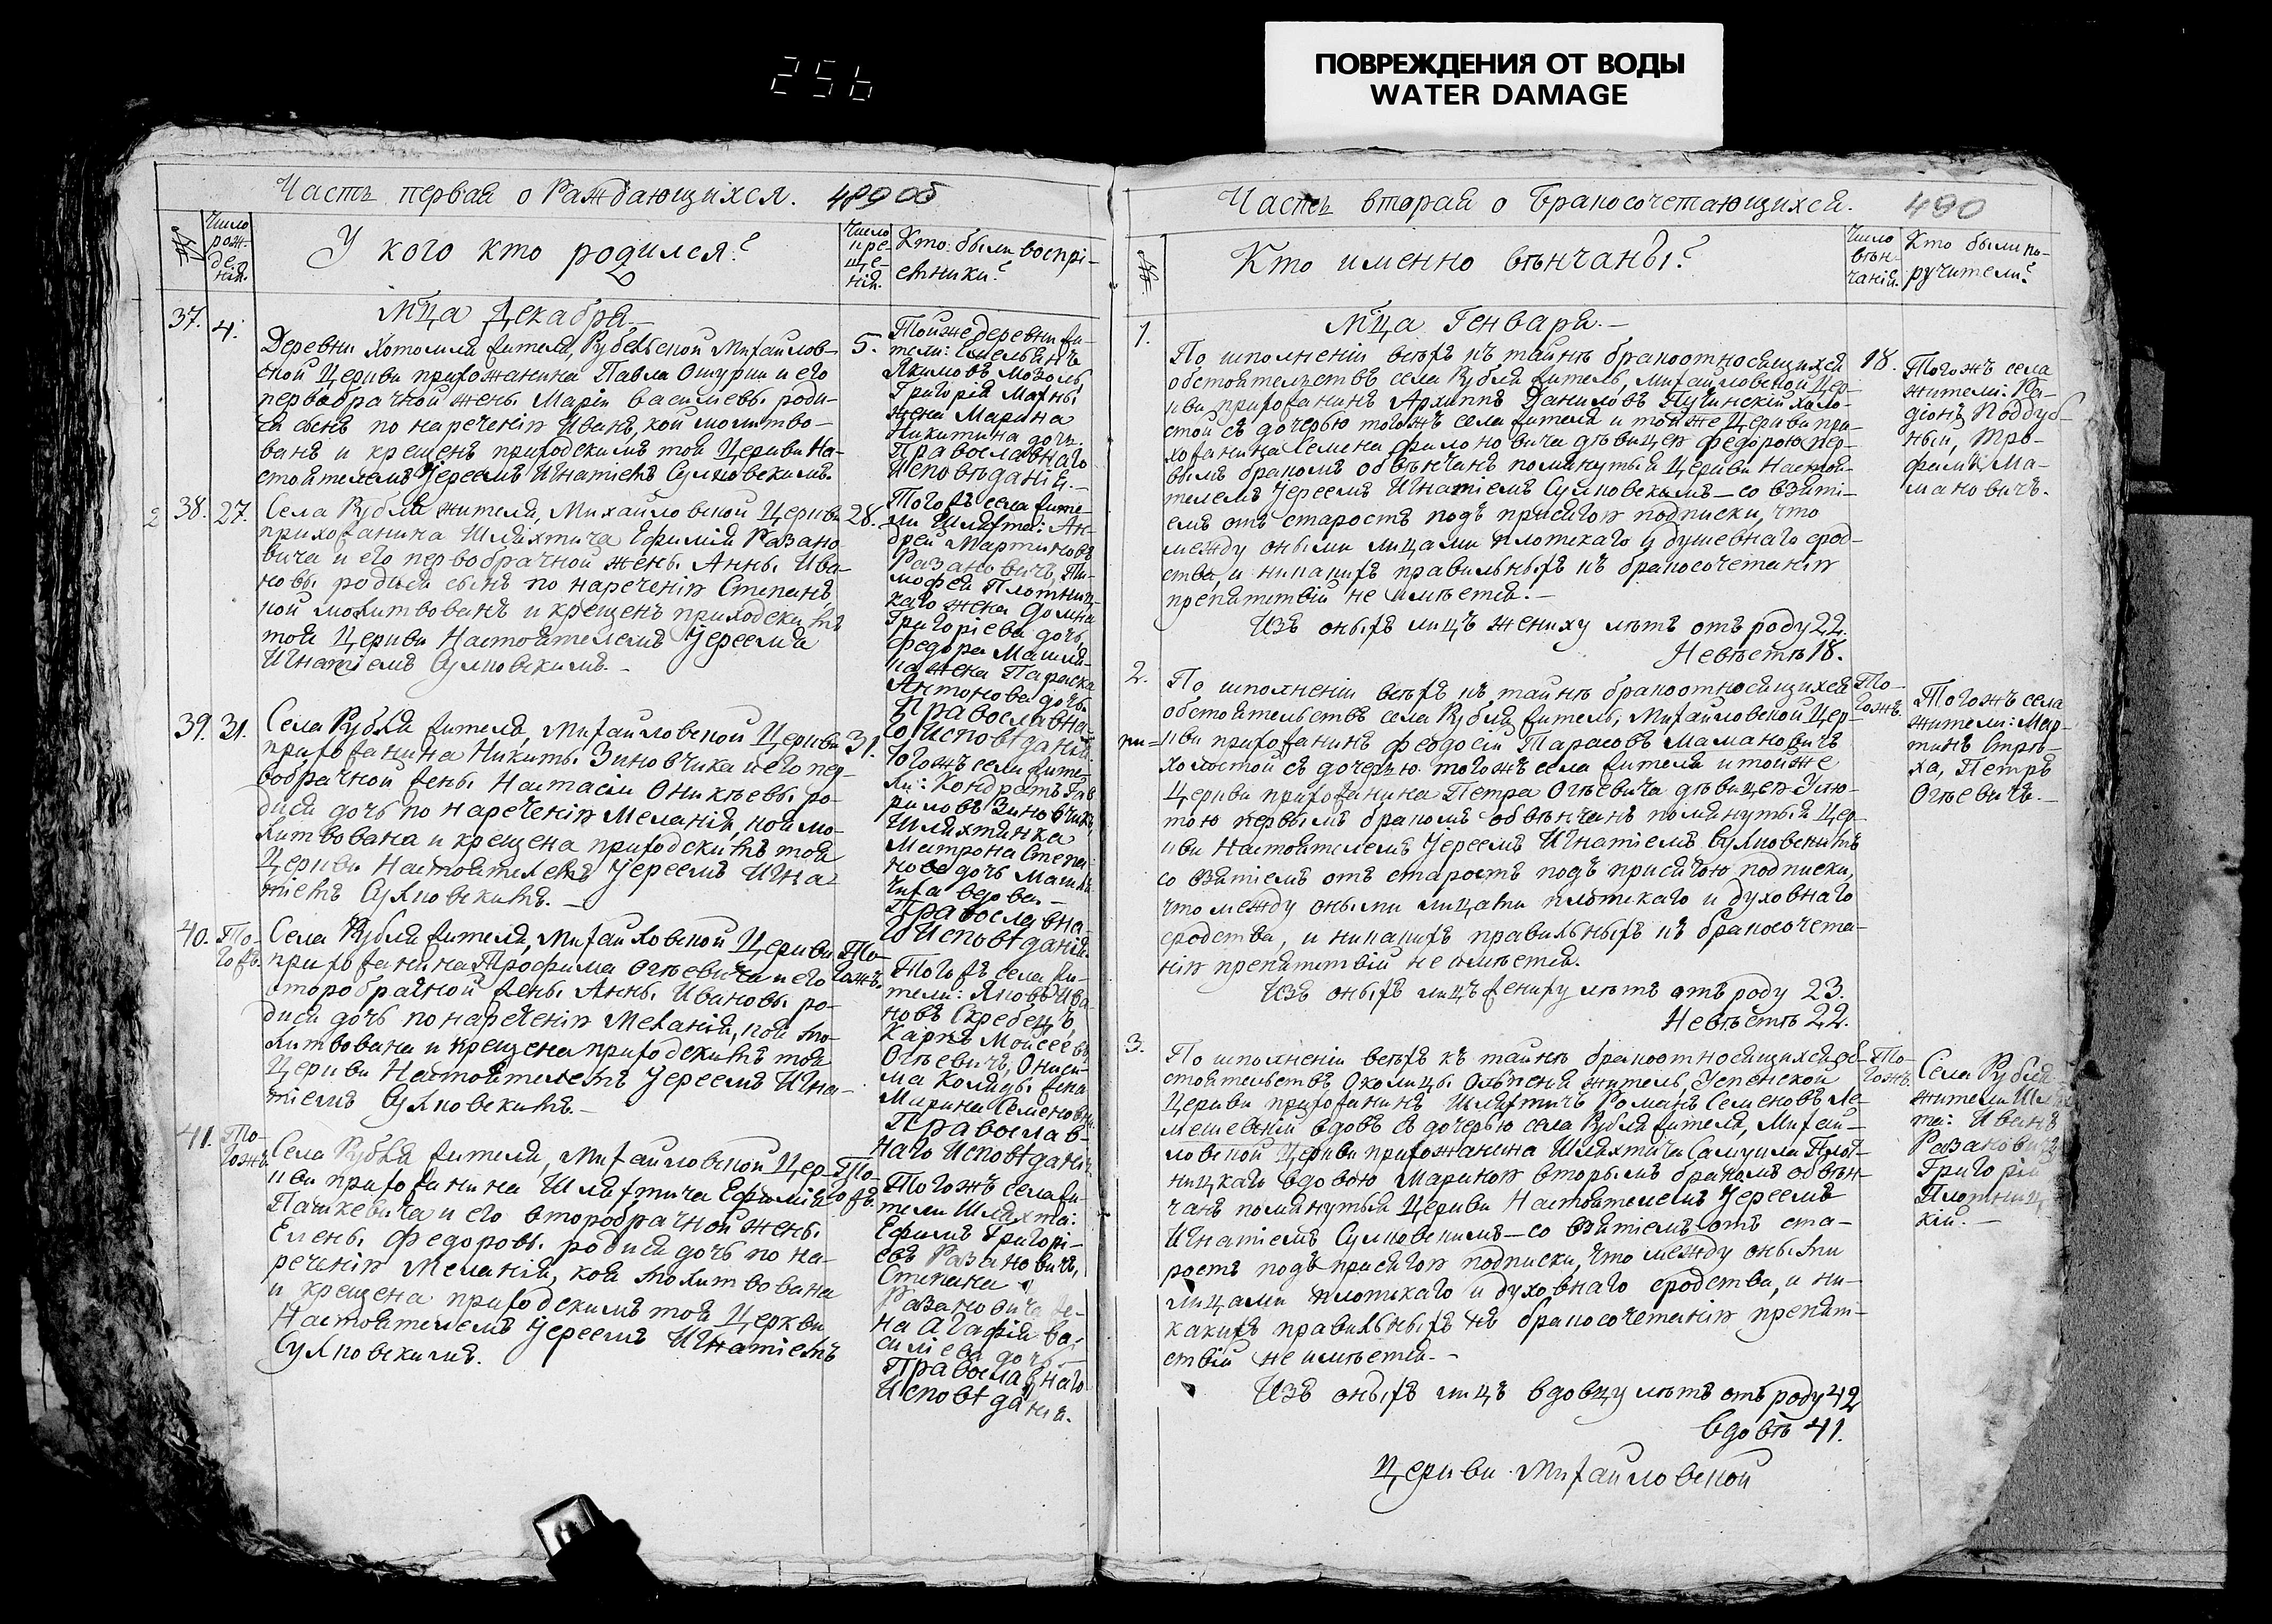 256
ПОВРЕЖДЕНИЯ ОТ ВОДЫ
WATER DAMAGE
Часть первая о Раждающихся. 489 об
№
Число рож-
де-
нія.
У кого кто родился?
Число
кре-
ще-
нія.
Кто были воспрі-
емники?
Мца Декабря
37. 4.
Деревни Хотомля жителя, Рубельской Михайлов-
ской Церкви прихожанина Павла Ошурки и его
первобрачной жены Маріи Васильевы роди-
ся сынъ по нареченію Иванъ, кой молитво-
ванъ и крещенъ приходскимъ той Церкви На-
стоятелемъ Іереемъ Игнатіемъ Сулковскимъ.
5.
Тойже деревни жи-
тели: Емельянъ
Якимовъ Мозоль
Григорія Махны
жена Марина
Никитина дочь.
Православнаго
Исповѣданія.
2 38. 27.
Села Рубля жителя, Михайловской Церкви
прихожанина Шляхтича Ефимія Разано-
вича и его первобрачной жены Анны Ива-
новы родися сынъ по нареченію Степанъ
кой молитвованъ и крещенъ приходскимъ
той Церкви Настоятелемъ Іереемъ
Игнатіемъ Сулковскимъ.
28.
Тогожъ села жите-
ли Шляхта: Ан-
дрей Мартиновъ
Разановичъ, Ти-
мофея Плотниц-
каго жена Домна
Григоріева дочь,
Федора Машля-
ка жена Параска
Антонова дочь.
Православна-
го Исповѣданія.
39. 31.
Села Рубля жителя, Михайловской Церкви
прихожанина Никиты Зиновчика и его пер-
вобрачной жены Настасіи Оникѣевы ро-
дися дочь по нареченію Меланія, коя мо-
литвована и крещена приходскимъ той
Церкви Настоятелемъ Іереемъ Игна-
тіемъ Сулковскимъ.
31.
Тогожъ села жите-
ли: Кондратъ
Зиновчикъ,
Шляхтянка
Матрона Степа-
нова дочь
Православна-
го Исповѣданія.
40. То-
гожъ.
Села Рубля жителя, Михайловской Церкви
прихожанина Трофима Огѣевича и его
второбрачной жены Анны Ивановы ро-
дися дочь по нареченію Меланія, коя мо-
литвована и крещена приходскимъ той
Церкви Настоятелемъ Іереемъ Игна-
тіемъ Сулковскимъ.
То-
гожъ.
Тогожъ села жи-
тели: Яковъ Ива-
новъ Скребецъ,
Карпъ Моисеевъ
Огѣевичъ, Ониси-
ма Коляды жена
Марина Семенова
Православ-
наго Исповѣданія.
41. То-
гожъ
Села Рубля жителя, Михайловской Цер-
кви прихожанина Шляхтича Ефимія
Пашкевича и его второбрачной жены
Елены Федоровы родися дочь по на-
реченію Меланія, коя молитвована
и крещена приходскимъ той Церкви
Настоятелемъ Іереемъ Игнатіемъ
Сулковскимъ.
То-
гожъ.
Тогожъ села жи-
тели Шляхта:
Ефимъ Григорі-
евъ Разановичъ,
Степана
Разановича же-
на Агафія Ва-
силіева дочь
Православнаго
Исповѣданія.
Часть вторая о Бракосочетающихся. 490
№
Кто именно вѣнчаны?
Число
вѣн-
чанія.
Кто были по-
ручители?
Мца Генваря.
1.
По исполненіи всѣхъ къ тайнѣ бракоотносящихся
обстоятельствъ села Рубля житель, Михайловской Цер-
кви прихожанинъ Архиппъ Даниловъ Пучинскій холо-
стой съ дочерью тогожъ села жителя и тойже Церкви при-
хожанина Семена Филоновича дѣвицею Федорою пер-
вымъ бракомъ обвѣнчанъ помянутыя Церкви Настоя-
телемъ Іереемъ Игнатіемъ Сулковскимъ — со взяті-
емъ отъ старостъ подъ присягою подписки, что
между оными лицами плотскаго и душевнаго срод-
ства, и никакихъ правильныхъ къ бракосочетанію
препятствій не имѣется.
Изъ оныхъ лицъ жениху лѣтъ отъ роду 22.
Невѣстѣ 18.
18.
Тогожъ села
жители: Ра-
діонъ Поддуб-
ный, Тро-
фимъ Ма-
мановичъ.
2.
По исполненіи всѣхъ къ тайнѣ бракоотносящихся
обстоятельствъ села Рубля житель, Михайловской Цер-
кви прихожанинъ Феодосій Тарасовъ Мамановичъ
холостой съ дочерью тогожъ села жителя и тойже
Церкви прихожанина Петра Огѣевича дѣвицею Улю-
тою первымъ бракомъ обвѣнчанъ помянутыя Цер-
кви Настоятелемъ Іереемъ Игнатіемъ Сулковскимъ
со взятіемъ отъ старостъ подъ присягою подписки,
что между оными лицами плотскаго и духовнаго
сродства, и никакихъ правильныхъ къ бракосочета-
нію препятствій не имѣется.
Изъ оныхъ лицъ жениху лѣтъ отъ роду 23.
Невѣстѣ 22.
То-
гожъ.
Тогожъ села
жители: Мар-
тинъ Стрѣ-
ха, Петръ
Огѣевичъ.
3.
По исполненіи всѣхъ къ тайнѣ бракоотносящихся об-
стоятельствъ Околицы Ольпеня житель, Успенской
Церкви прихожанинъ Шляхтичъ Романъ Семеновъ Ле-
мешевскій вдовъ съ дочерью села Рубля жителя, Михай-
ловской Церкви прихожанина Шляхтича Самуила Плот-
ницкаго вдовою Мариною вторымъ бракомъ обвѣн-
чанъ помянутыя Церкви Настоятелемъ Іереемъ
Игнатіемъ Сулковскимъ — со взятіемъ отъ ста-
ростъ подъ присягою подписки, что между оными
лицами плотскаго и духовнаго сродства, и ни-
какихъ правильныхъ къ бракосочетанію препят-
ствій не имѣется.
Изъ оныхъ лицъ вдовцу лѣтъ отъ роду 42
вдовѣ 41.
То-
гожъ.
Села Рубля
жители Шлях-
та: Иванъ
Разановичъ
Григорій
Плотниц-
кій.
Церкви Михайловской